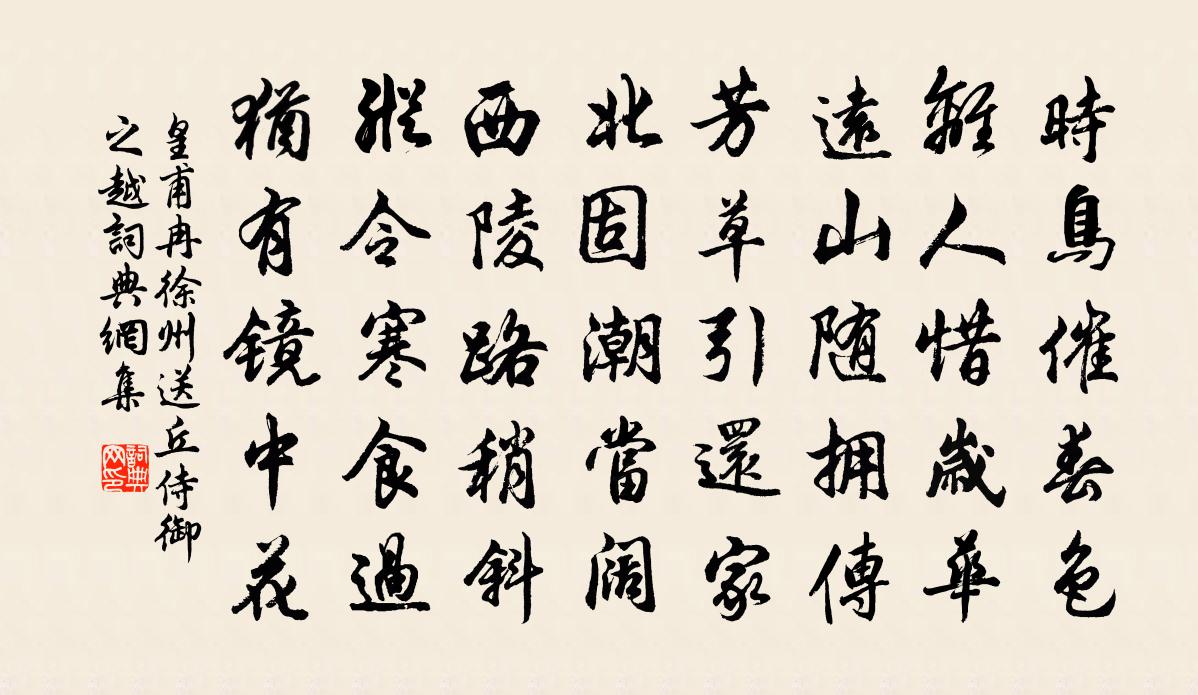 時鳥催春色
離人惜歲華
遠山随拥傳
芳草引還家
北固潮當阔
西陵路稍斜
縱令寒食過
猶有镜中花
皇甫冉徐州送丘侍御
之越詞典網集
詞典网印